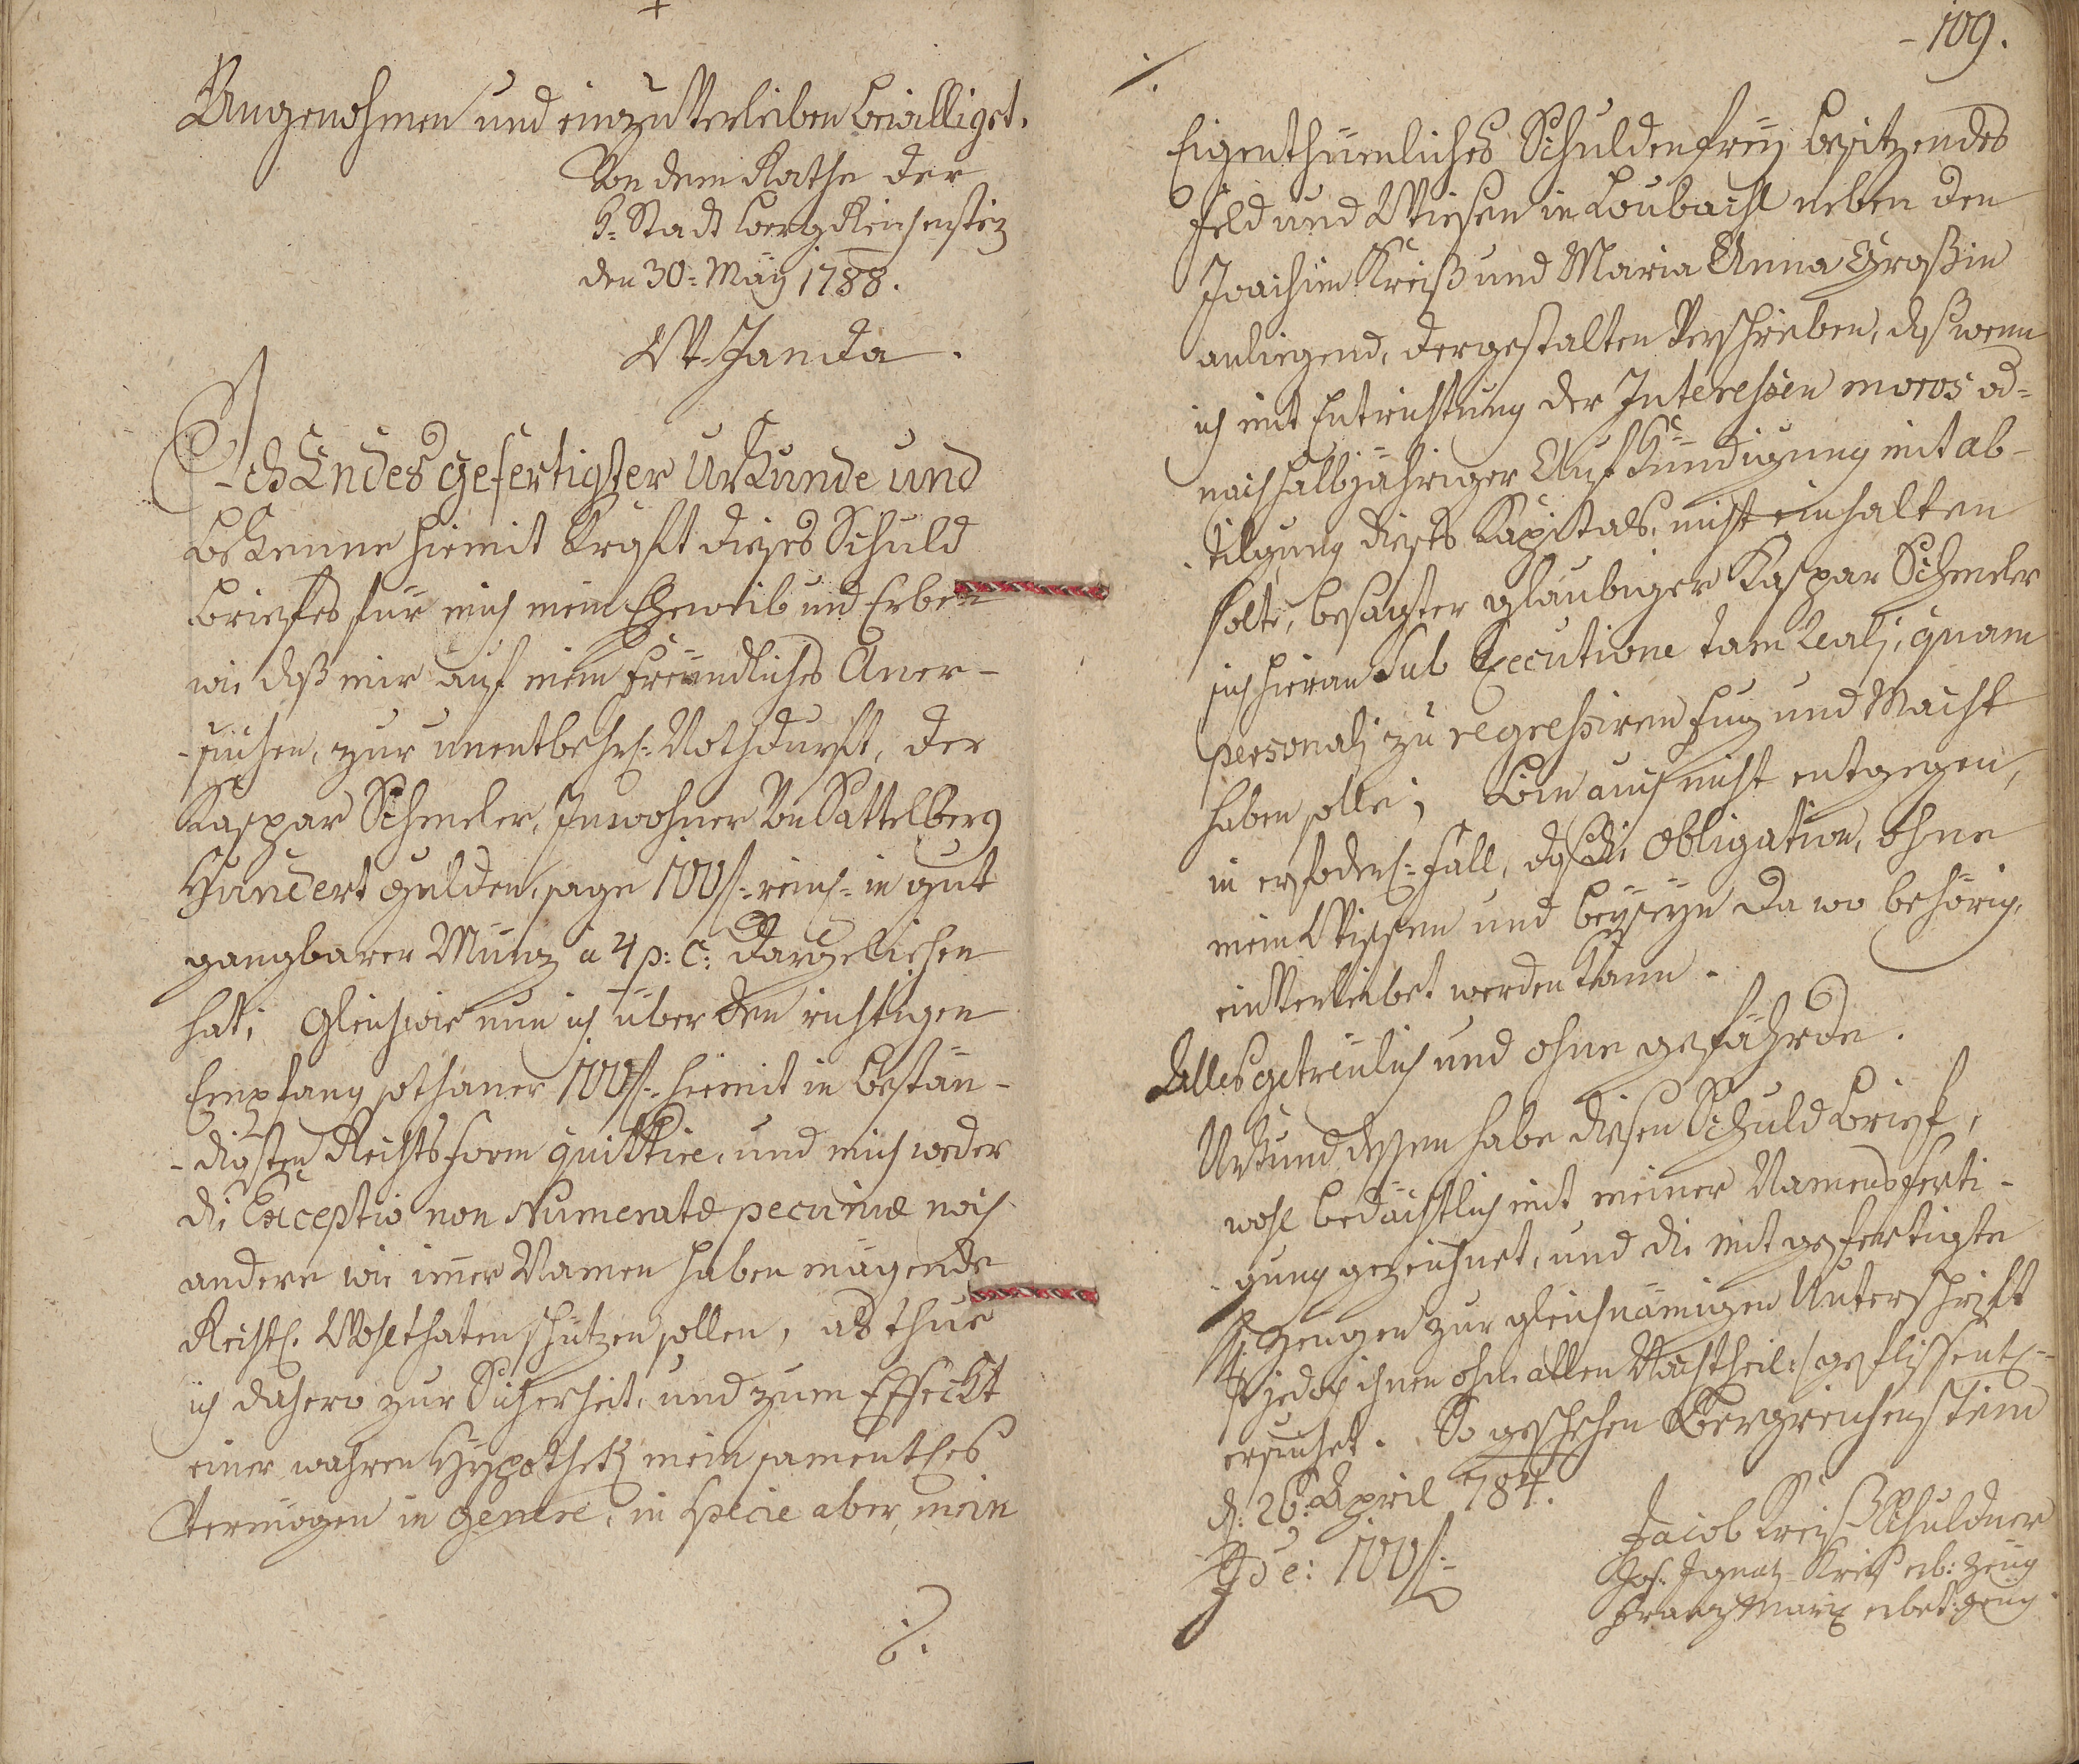 Angenohmen und einzuverleiben bewilliget.
Von dem Rathe der
K: Stadt Bergreichenstein
den 30= May 1788.
W. Janda.
Ich Endesgefertigter Urkunde und
bekenne hiemit Krafft dieses Schuld
briefes für mich mein Eheweib und Erben
wie daß mir auf mein freundliches Aner-
-suchen, zur unentbehrl: Nothdurft, der
Kaspar Schmeler, Inwohner von Sattelberg
Hundert Gulden, sage 100 f: reinl: in gut
gangbarer Münz a 4 p: C: dargeliehen
hat; Gleichwie nun ich über den richtigen
Empfang sothaner 100 f: hiemit in bestän-
-digster Rechtsform quittire, und mich weder
die Exceptio non Numeratæ pecuniæ noch
andere wie imer Namen haben mögende
Rechtl: Wohlthaten schützen sollen, als thue
ich dahero zur Sicherheit, und zum Effeckt
einer wahren Hypothek mein samentles
Vermögen in genere, in specie aber, mein
./.
109.
./.
Eigenthümliches Schuldenfrey besitzendes
Feld und Wiesen in Loubachl neben den
Joachim Kreiß und Maria Anna Großin
anliegend, dergestalten verschrieben, daß wenn
ich mit Entrichtung der Interessen moros od=
nach halbjähriger Aufkündigung mit ab-
-tilgung dieses Kapitals, nicht einhalten
solte, besagter glaubiger Kaspar Schmeler
sich hieran sub Executione tam reali, quam
personali zu regressiren Fug und Macht
haben solle; Bin auch nicht entgegen,
in erfoderl: Fall, daß die Obligation, ohne
mein Wissen und beyseyn da wo behörig,
einverleibet werden kann.
Alles getreulich und ohne gefährde.
Urkund dessen habe diesen Schuldbrief,
wohl bedächtlich mit meiner Namensferti-
-gung gezeichnet, und die mit gefertigte
H. Zeugen zur gleichnamigen Unterschrift
/: jedoch ihnen ohne allen Nachtheil :/ geflissentl:
ersuchet. So geschehen Bergreichenstein
d: 26: April 784.
Jacob Kreiß Schuldner
Jos. Ignatz Kreiß erb: Zeug
Franz Marx erbet: Zeug
Id e: 100 f: